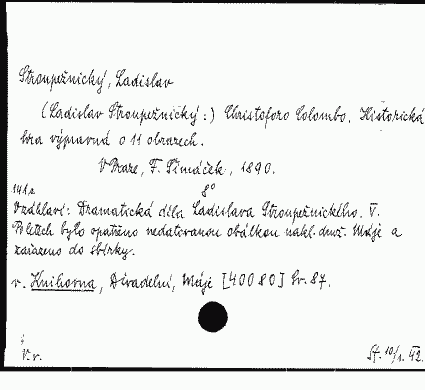 Stroupežnický, Ladislav
(Ladislav Stroupežnický:) Christoforo Colombo. Historická
hra výpravná o 11 obrazech.
V Praze, F. Šimáček, 1890.
141 s. 8°
V záhlaví: Dramatická díla Ladislava Stroupežnického. V.
Po létech bylo opatřeno nedatovanou obálkou nakl. druž. Máje a
zařazeno do sbírky.
v. Knihovna, Divadelní, Máje [40080] Sv. 87.
N. v. St. 10/1. 42.